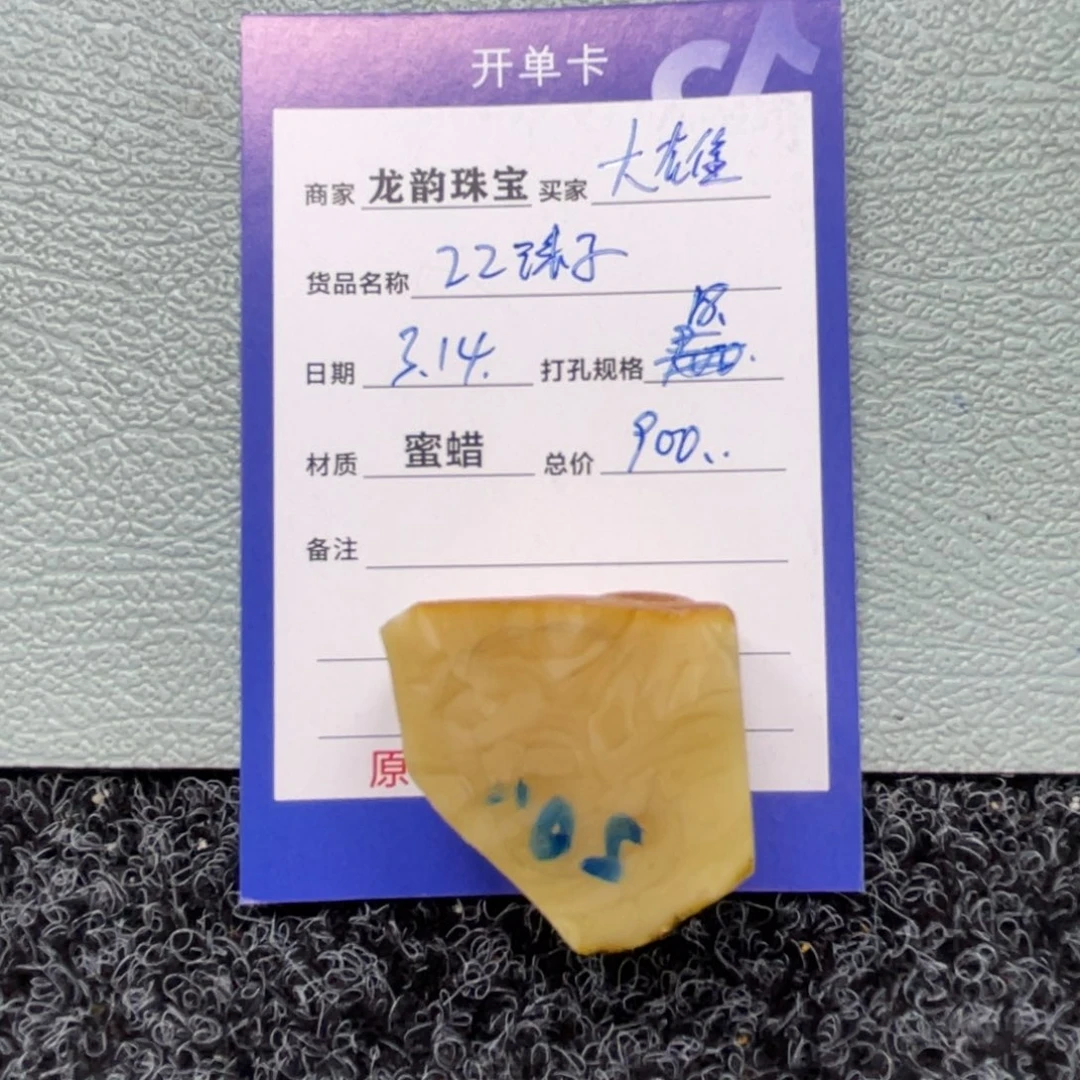 开单卡
商家 龙韵珠宝 买家 大雄
货品名称 22珠子
18.
日期 3.14. 打孔规格
材质 蜜蜡 总价 900..
备注
原
20"